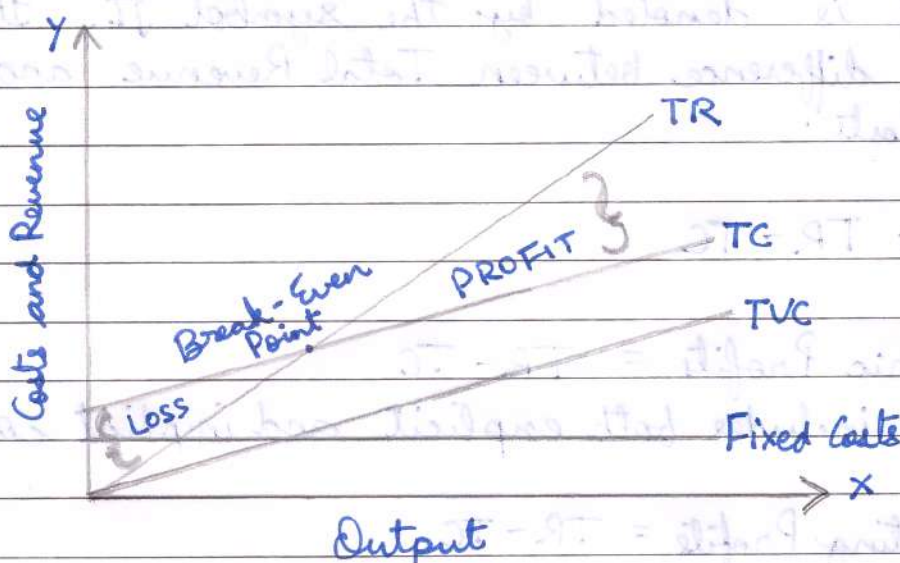 Y
Costs and Revenue
TR
TC
PROFIT
Break-Even
Point
TVC
LOSS
Fixed Costs
X
Output